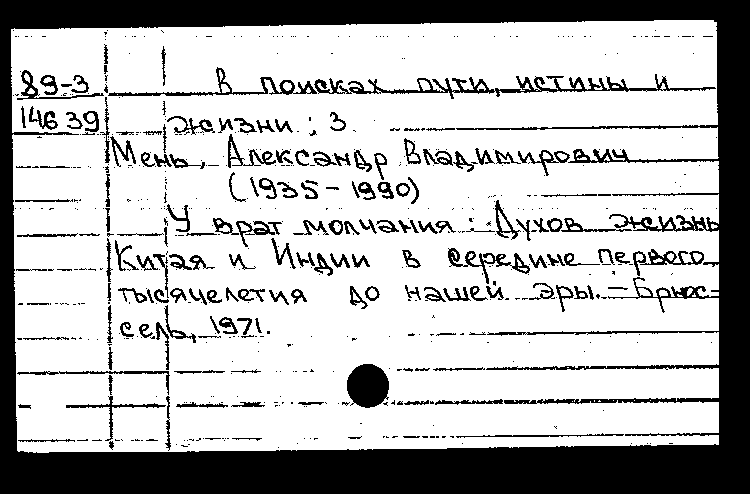 89-3 В поисках пути, истины и
14639 жизни ; 3
Мень, Александр Владимирович
(1935 - 1990)
У врат молчания : Духов. жизнь
Китая и Индии в середине первого
тысячелетия до нашей эры. – Брюс-
сель, 1971.